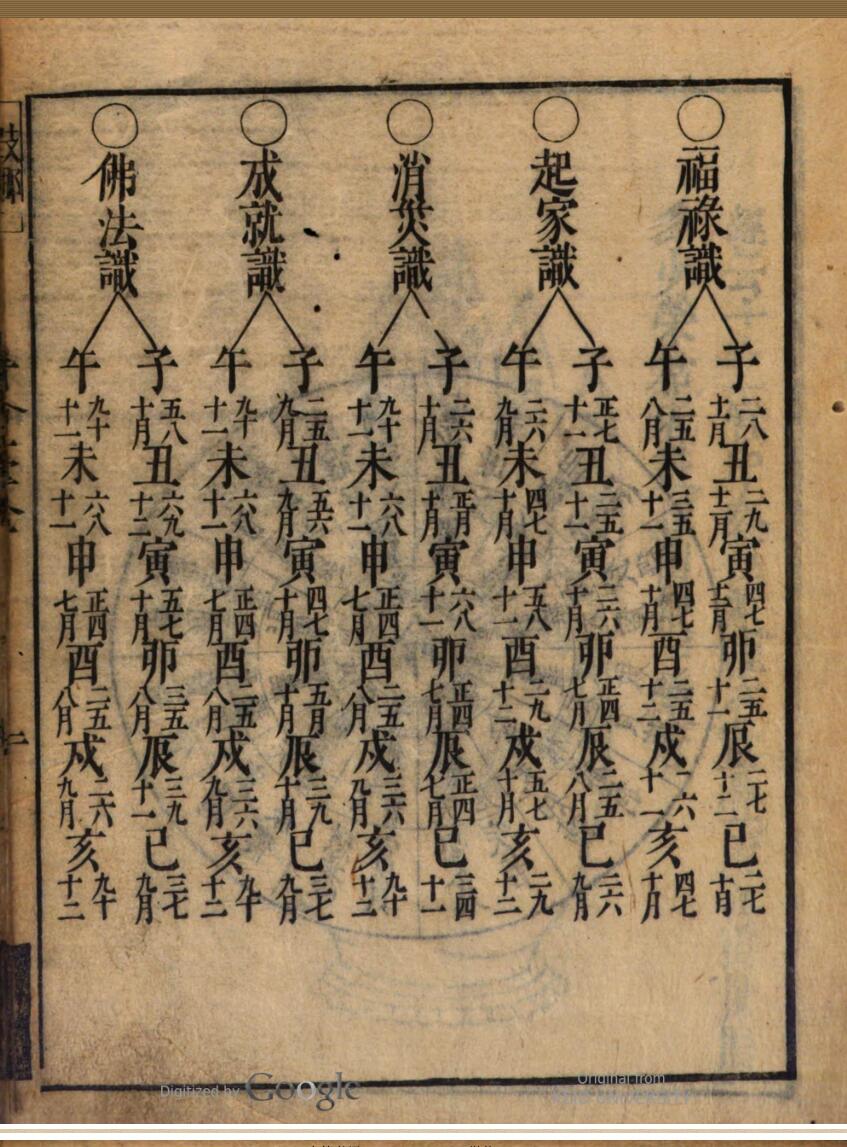 福祿識
子二八十月丑二九十二月寅四七十二月卯二五十一辰二七十二巳二七十月
午二五八月未三五十一申四七十月酉二五十二戌二六十一亥四七十月
起家識
子正七十一丑二五十一寅二六十月卯正四七月辰二五八月巳二六九月
午二六九月未四七十月申五八十一酉二九十二戌五七十月亥二九十二
消災識
子二六十月丑正月十月寅六八十一卯正四七月辰正四七月巳三四十一
午九十十一未六八十一申正四七月酉二五八月戌三六九月亥九十十二
成就識
子二五九月丑五六九月寅四七十月卯五月十月辰三九十月巳三七九月
午九十十一未六八十一申正四七月酉二五八月戌三六九月亥九十十二
佛法識
子五八十月丑六九十二寅五七十月卯三五八月辰三九十一巳三七九月
午九十十一未六八十一申正四七月酉二五八月戌二六九月亥九十十二
Digitized by Google
Original from